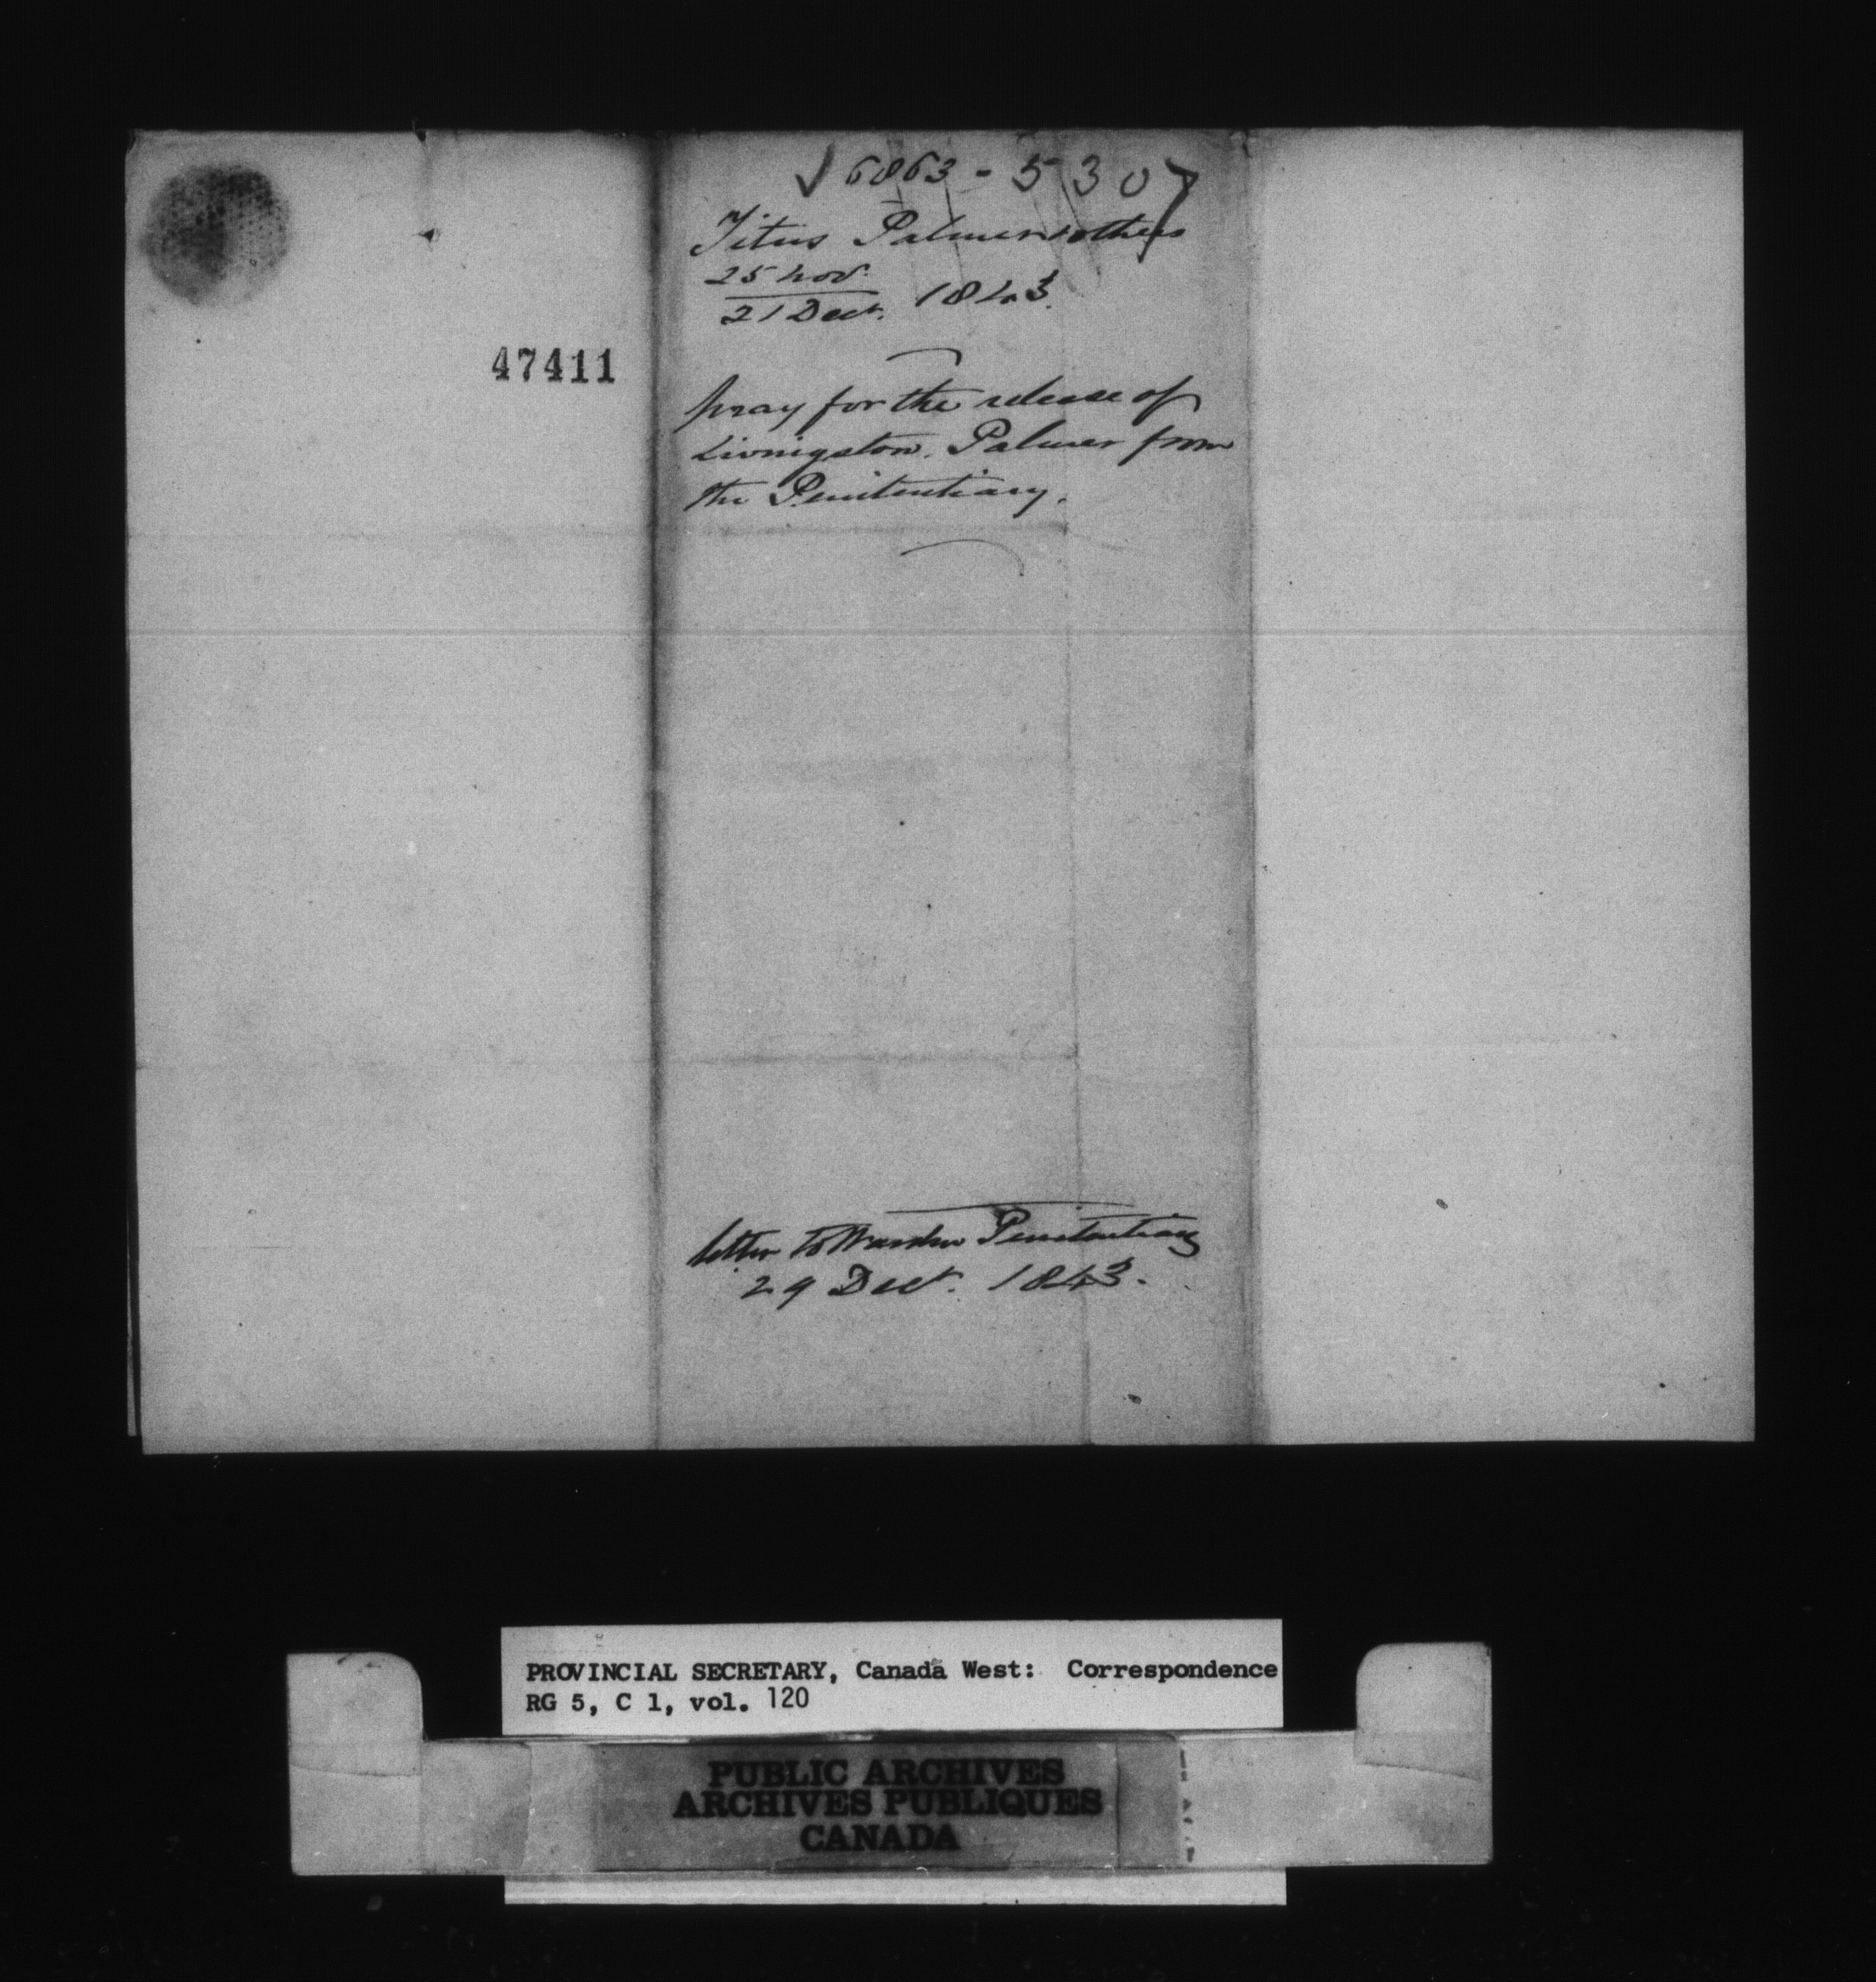 ✓ 6863 - 5307
Titus Palmer & others
25 Nov.
21 Decr. 1843.
47411
pray for the release of
Livingston Palmer from
the Penitentiary.
letter to Warden Penitentiary
29 Decr. 1843.
PROVINCIAL SECRETARY, Canada West: Correspondence
RG 5, C 1, vol. 120
PUBLIC ARCHIVES
ARCHIVES PUBLIQUES
CANADA